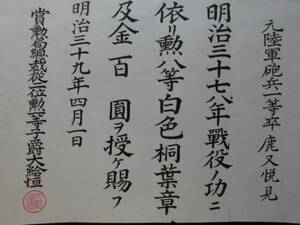 元陸軍砲兵一等卒鹿又悦見
明治三十七八年戰役ノ功ニ
依リ勲八等白色桐葉章
及金一百圓ヲ授ケ賜フ
明治三十九年四月一日
賞勲局總裁從二位勲一等子爵大給恒